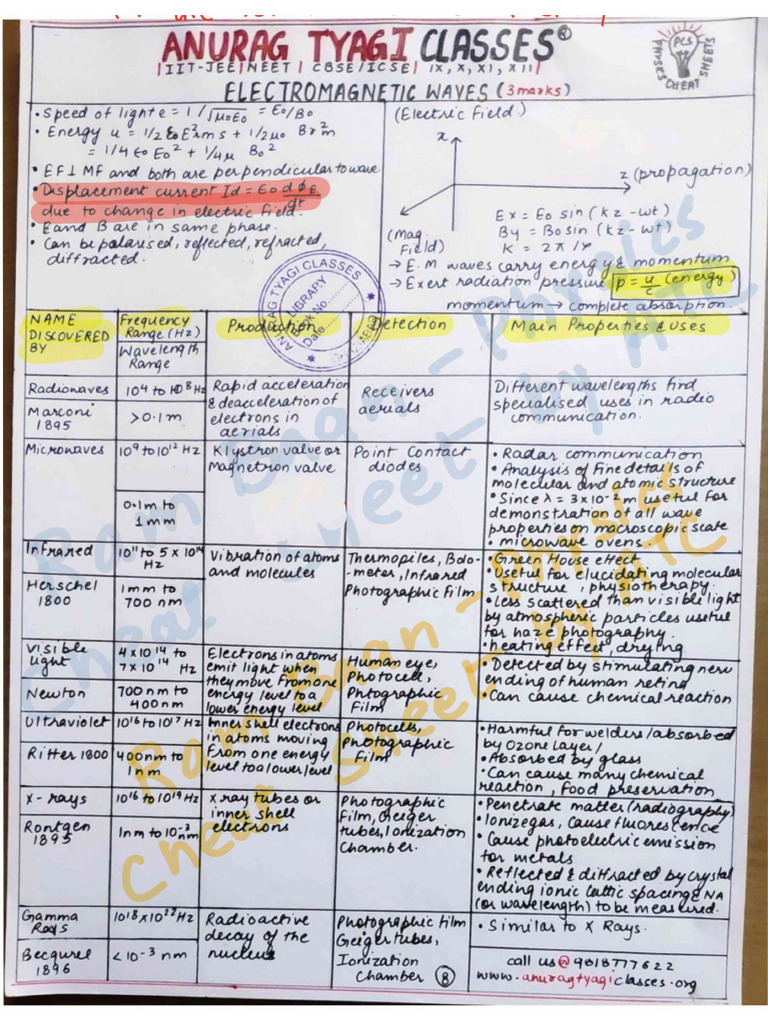 ANURAG TYAGI CLASSES®
|IIT-JEE|NEET| CBSE/ICSE| IX, X, XI, XII|
PCS
PHYSICS CHEAT SHEETS
ELECTROMAGNETIC WAVES (3marks)
• Speed of light c = 1/√μ0ε0 = E0/B0
• Energy u = 1/2 ε0 E²rms + 1/2μ0 Br²m
= 1/4 ε0 E0² + 1/4μ B0²
• EF ⊥ MF and both are perpendicular to wave
• Displacement current Id = ε0 dϕE/dt
due to change in electric field.
• E and B are in same phase.
• Can be polarised, reflected, refracted,
diffracted.
(Electric Field)
x
z (propagation)
(Mag. Field)
Ex = E0 sin (kz - wt)
By = B0 sin (kz - wt)
K = 2π/λ
→ E.M waves carry energy & momentum
→ Exert radiation pressure p = u/c (energy)
momentum → complete absorption
ANURAG TYAGI CLASSES
LIBRARY
Date
NAME DISCOVERED BY
Frequency Range (Hz)
Wavelength Range
Production
Detection
Main Properties & Uses
Radiowaves
Marconi 1895
10⁴ to 10⁸ Hz
>0.1m
Rapid acceleration
& deacceleration of
electrons in
aerials
Receivers
aerials
Different wavelengths find
specialised uses in radio
communication.
Microwaves
10⁹ to 10¹² Hz
0.1m to
1mm
Klystron valve or
Magnetron valve
Point Contact
diodes
• Radar communication
• Analysis of fine details of
molecular and atomic structure
• Since λ = 3×10⁻² m useful for
demonstration of all wave
properties on macroscopic scate
• microwave ovens.
Infrared
Herschel
1800
10¹¹ to 5 x 10¹⁴
Hz
1mm to
700 nm
Vibration of atoms
and molecules
Thermopiles, Bolo-
-meter, Infrared
Photographic Film
• Green House effect
• Useful for elucidating molecular
structure, physiotherapy.
• Less scattered than visible light
by atmospheric particles useful
for haze photography.
• heating effect, drying
Visible
light
Newton
4 x 10¹⁴ to
7 x 10¹⁴ Hz
700 nm to
400nm
Electrons in atoms
emit light when
they move from one
energy level to a
lower energy level
Human eye,
Photocell,
Phtographic
Film
• Detected by stimulating nerv
ending of human retina
• Can cause chemical reaction
Ultraviolet
Ritter 1800
10¹⁶ to 10¹⁷ Hz
400nm to
1nm
Inner shell electrons
in atoms moving
from one energy
level to a lower level
Photocells,
Photographic
Film
• Harmful for welders/absorbed
by Ozone layer/
• Absorbed by glass
• Can cause many chemical
reaction, Food preservation
X-rays
Rontgen
1895
10¹⁶ to 10¹⁹ Hz
1nm to 10⁻³
nm
X ray tubes or
inner shell
electrons
Photographic
Film, Geiger
tubes, Ionization
Chamber.
• Penetrate matter (radiography)
• Ionize gas, Cause fluorescence
• Cause photoelectric emission
for metals
• Reflected & diffracted by crystal
ending ionic lattic spacing & NA
(or wavelength) to be measured.
Gamma
Rays
Becqurel
1896
10¹⁸ x 10²² Hz
< 10⁻³ nm
Radioactive
decay of the
nucleus
Photographic film
Geiger tubes,
Ionization
Chamber
8
• Similar to X Rays.
call us@ 9818777622
www.anuragtyagiclasses.org
Ram Baan - Physics
Cheat Sheet by ATC
Ram Baan - Physics
Cheat Sheet by ATC